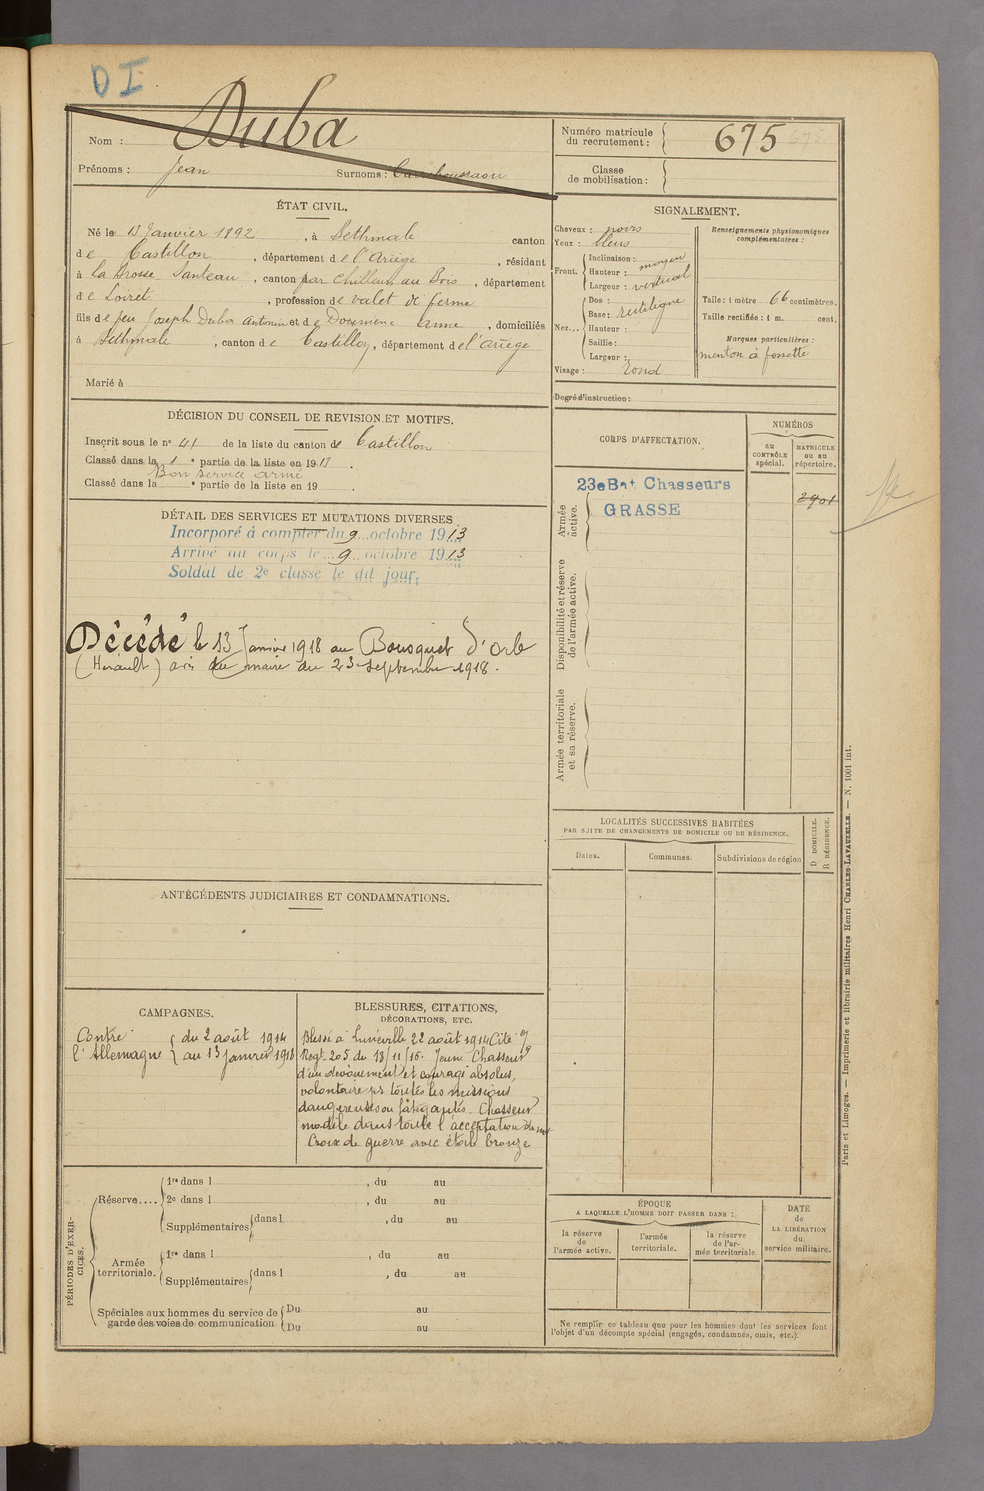 D I
Nom : Duba
Prénoms : Jean Surnoms :
Numéro matricule
du recrutement : 675
Classe
de mobilisation :
ÉTAT CIVIL.
Né le 13 Janvier 1892, à Sethmale canton
de Castillon, département de l'Ariège, résidant
à la Brosse Santeau, canton par Chilleurs au Bois, département
de Loiret, profession de valet de ferme
fils de feu Joseph Duba Antonin et de Doumenc Anne, domiciliés
à Sethmale, canton de Castillon, département de l'ariège
Marié à
SIGNALEMENT.
Cheveux : noirs
Yeux : bleus
Front. Inclinaison : moyen
Hauteur :
Largeur : vertical
Nez... Dos : rectiligne
Base :
Hauteur :
Saillie :
Largeur :
Visage : rond
Renseignements physionomiques
complémentaires :
Taille : 1 mètre 66 centimètres.
Taille rectifiée : 1 m. cent.
Marques particulières :
menton à fossette
Degré d'instruction :
DÉCISION DU CONSEIL DE REVISION ET MOTIFS.
Inscrit sous le n° 41 de la liste du canton de Castillon
Classé dans la 1e partie de la liste en 1913.
Bon service armé
Classé dans la e partie de la liste en 19
DÉTAIL DES SERVICES ET MUTATIONS DIVERSES.
Incorporé à compter du 9 octobre 1913
Arrivé au corps le 9 octobre 1913
Soldat de 2e classe le dit jour.
Décédé le 13 Janvier 1918 au Bousquet d'Orb
(Hérault) avis du maire du 23 septembre 1918.
CORPS D'AFFECTATION.
NUMÉROS
AU
CONTRÔLE
spécial.
MATRICULE
OU AU
répertoire.
Armée
active.
23e Bnt Chasseurs
GRASSE
2901
Disponibilité et réserve
de l'armée active.
Armée territoriale
et sa réserve.
LOCALITÉS SUCCESSIVES HABITÉES
PAR SUITE DE CHANGEMENTS DE DOMICILE OU DE RÉSIDENCE.
Dates.
Communes.
Subdivisions de région
D DOMICILE.
R RÉSIDENCE.
ANTÉCÉDENTS JUDICIAIRES ET CONDAMNATIONS.
CAMPAGNES.
Contre du 2 août 1914
l'Allemagne au 13 janvier 1918
BLESSURES, CITATIONS,
DÉCORATIONS, ETC.
Blessé à Lunéville 22 août 1914 Cité
Regt. 205 du 18/11/16. Jeune Chasseur
d'un dévouement et courage absolus,
volontaire pr toutes les missions
dangereuses ou fatigantes. Chasseur
modèle dans toute l'acceptation du mot
Croix de guerre avec étoile bronze
PÉRIODES D'EXERCICES.
Réserve.... 1re dans l , du au
2e dans l , du au
Supplémentaires dans l , du au
Armée
territoriale. 1re dans l , du au
Supplémentaires dans l , du au
Spéciales aux hommes du service de
garde des voies de communication. Du au
Du au
ÉPOQUE
A LAQUELLE L'HOMME DOIT PASSER DANS :
la réserve
de
l'armée active.
l'armée
territoriale.
la réserve
de l'ar-
mée territoriale.
DATE
de
LA LIBÉRATION
du
service militaire.
Ne remplir ce tableau que pour les hommes dont les services font
l'objet d'un décompte spécial (engagés, condamnés, omis, etc.).
Paris et Limoges. — Imprimerie et librairie militaires Henri CHARLES-LAVAUZELLE. — N. 1001 int.